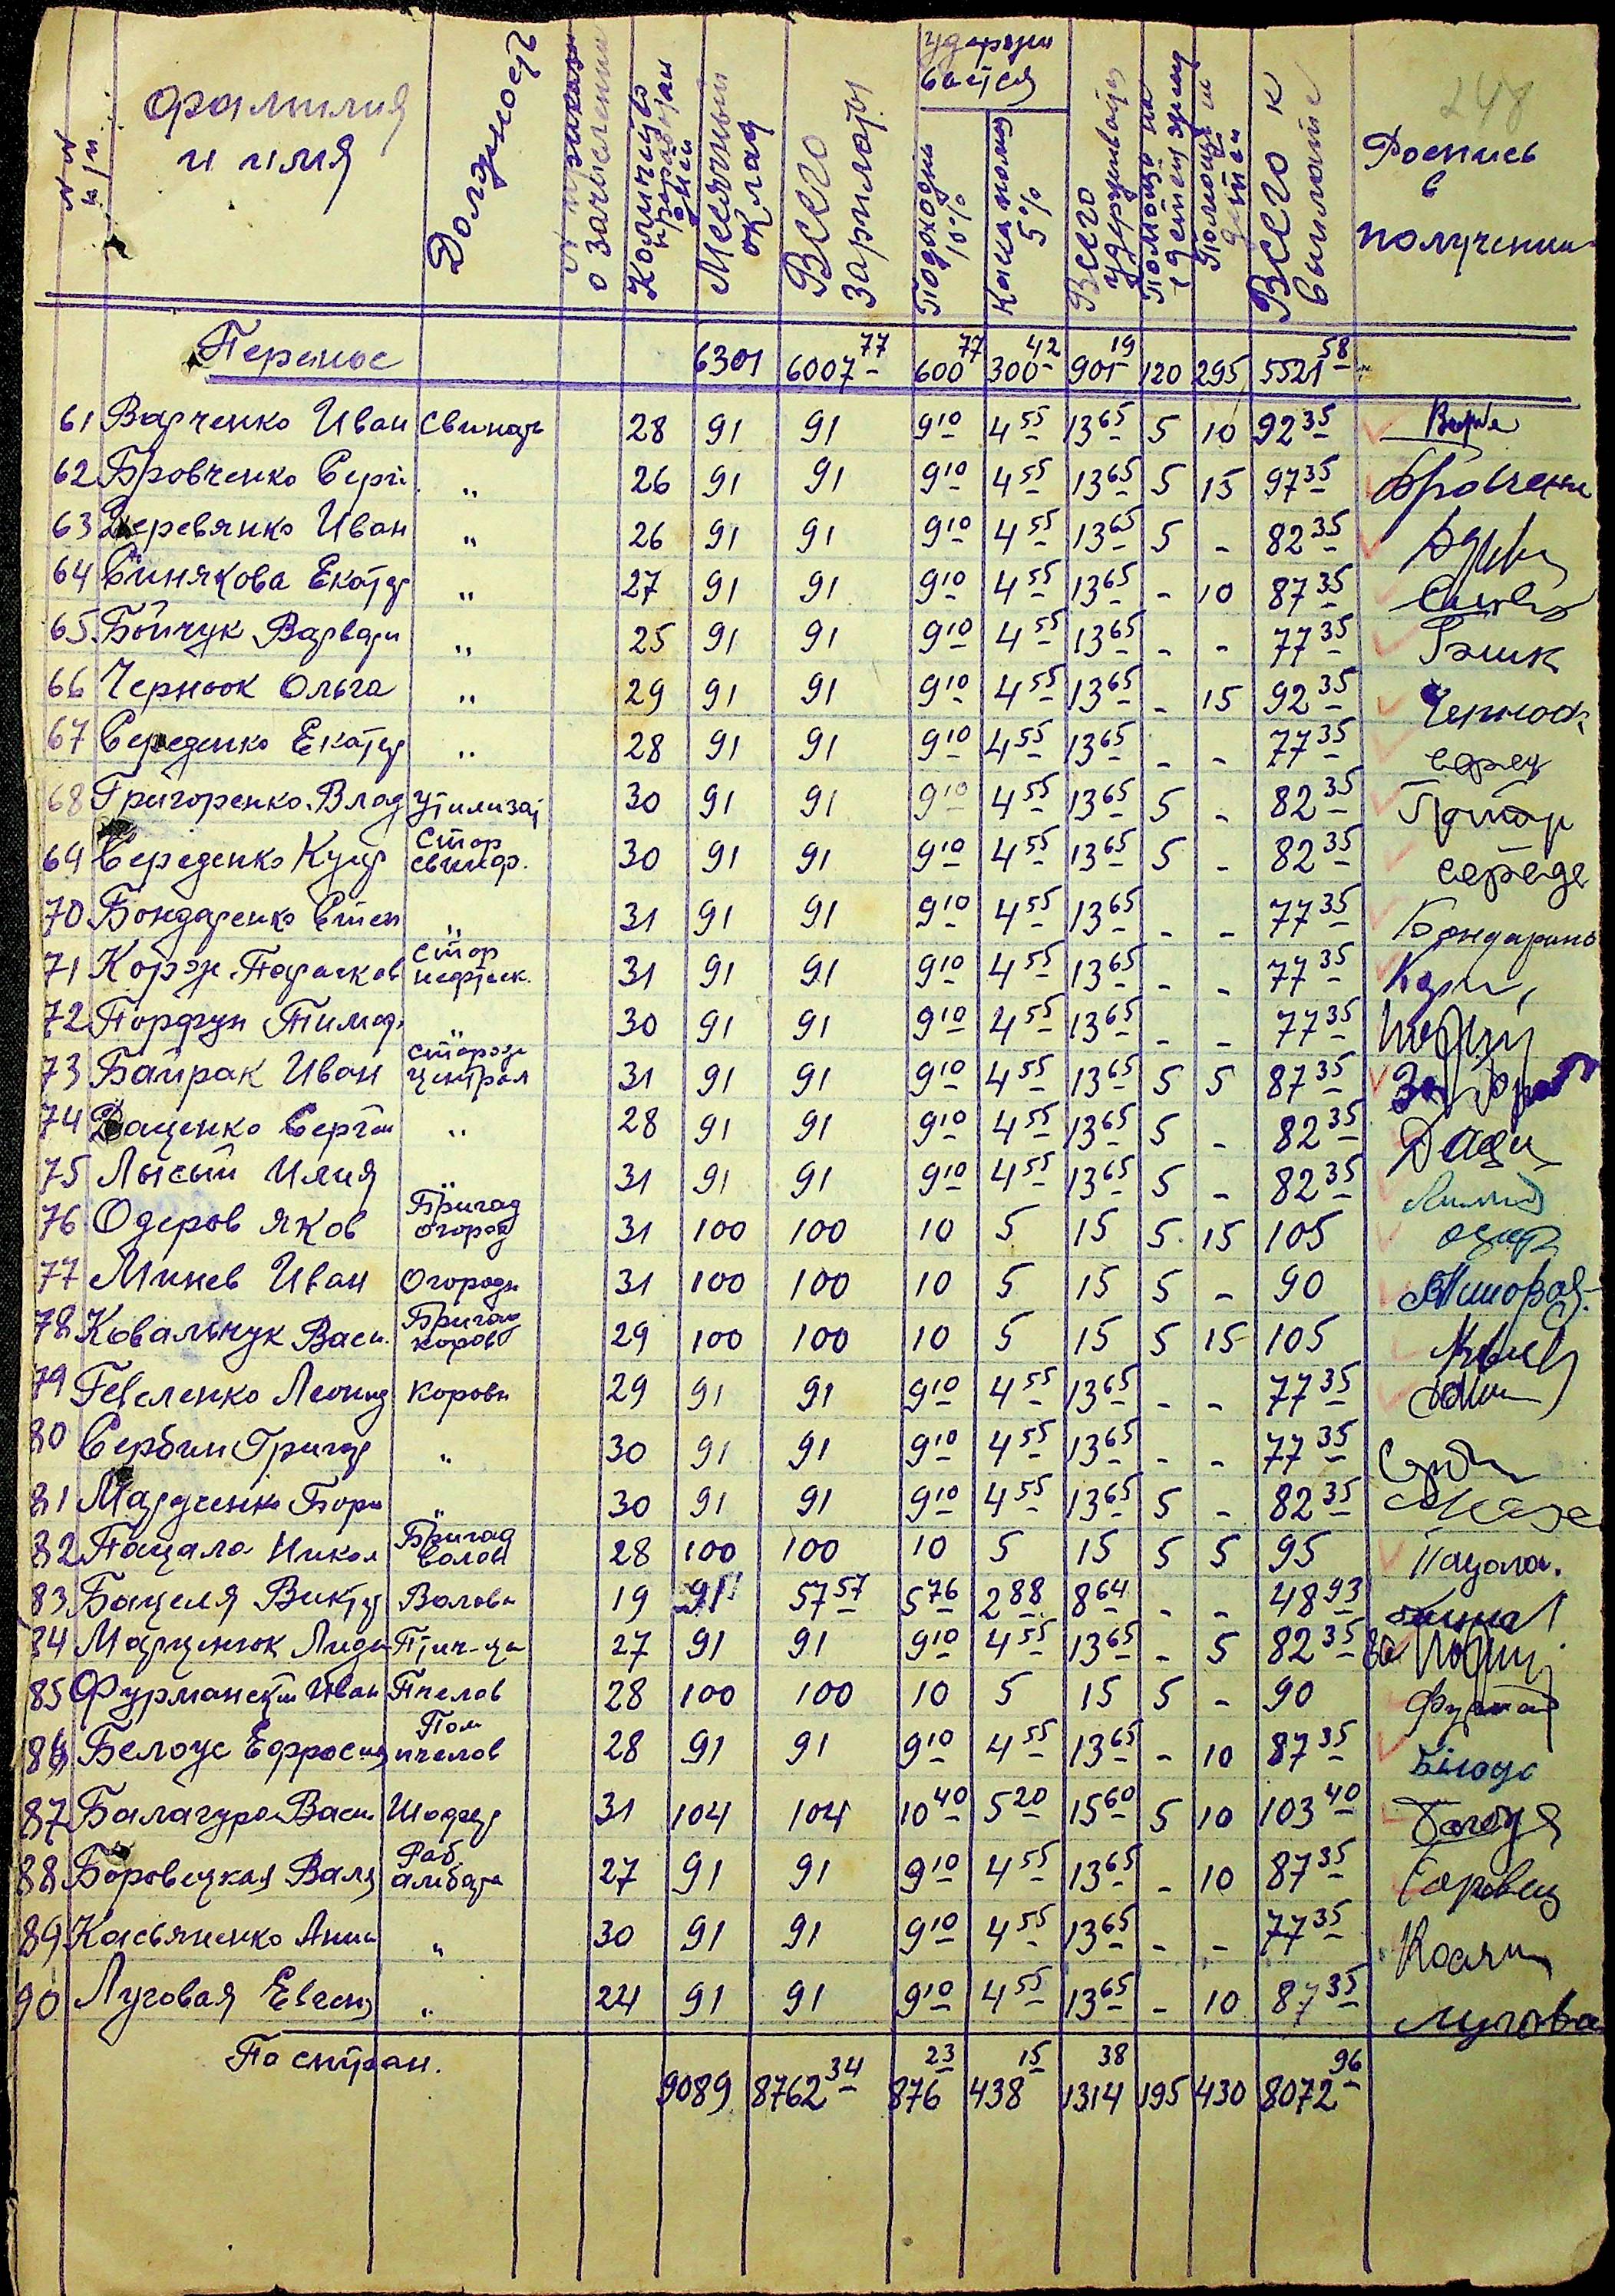 248
№ № п/п
фамилия и имя
Должность
№ приказа о зачислении
Количество проработан дней
Месячный оклад
Всего зарплаты
удержи вается
Подоходн 10%
Касса помощ 5%
Всего удерживать
Помощь
Помощь детей
Всего к выплате
Роспись в получении
Перенос 6301 6007 77 600 77 300 42 901 19 120 295 5521 58
61 Варченко Иван свинарь 28 91 91 9 10 4 55 13 65 5 10 92 35
62 Бровченко Серги " 26 91 91 9 10 4 55 13 65 5 15 97 35 Бровченк
63 Деревянко Иван " 26 91 91 9 10 4 55 13 65 5 - 82 35
64 Синякова Екатер " 27 91 91 9 10 4 55 13 65 - 10 87 35
65 Бойчук Варвари " 25 91 91 9 10 4 55 13 65 - - 77 35
66 Чернюк Ольга " 29 91 91 9 10 4 55 13 65 - 15 92 35 Чернюк
67 Середенко Екатер " 28 91 91 9 10 4 55 13 65 - - 77 35 серед
68 Григоренко Влад Утилизат 30 91 91 9 10 4 55 13 65 5 - 82 35
69 Середенко Кузр Стор свиноф. 30 91 91 9 10 4 55 13 65 5 - 82 35 середе
70 Бондаренко Степ " 31 91 91 9 10 4 55 13 65 - - 77 35 Бондаренко
71 Корж Парасков Стор нефтеск. 31 91 91 9 10 4 55 13 65 - - 77 35 Корж
72 Порфун Тимоф. " 30 91 91 9 10 4 55 13 65 - - 77 35
73 Байрак Иван Сторож централ 31 91 91 9 10 4 55 13 65 5 5 87 35
74 Даценко Сергей " 28 91 91 9 10 4 55 13 65 5 - 82 35 Даци
75 Лысый Илия " 31 91 91 9 10 4 55 13 65 5 - 82 35
76 Одеров Яков Бригад огород 31 100 100 10 5 15 5 15 105 одер
77 Минев Иван Огородн 31 100 100 10 5 15 5 - 90
78 Ковальчук Васи. Бригад коров 29 100 100 10 5 15 5 15 105
79 Гевеленко Леонид коровн 29 91 91 9 10 4 55 13 65 - - 77 35
80 Сербин Григор " 30 91 91 9 10 4 55 13 65 - - 77 35
81 Марченко Бори " 30 91 91 9 10 4 55 13 65 5 - 82 35
82 Пацала Никол Бригад волов 28 100 100 10 5 15 5 5 95 Пацала.
83 Бацеля Виктор Воловн 19 91 57 57 5 76 2 88 8 64 - - 48 93
84 Марценюк Лида Птич-ца 27 91 91 9 10 4 55 13 65 - 5 82 35 За
85 Фурманский Иван Пчелов 28 100 100 10 5 15 5 - 90 Фурман
86 Белоус Ефросин Пом пчелов 28 91 91 9 10 4 55 13 65 - 10 87 35 Білоус
87 Балагура Васи Шофер 31 104 104 10 40 5 20 15 60 5 10 103 40
88 Боровецкая Валя Раб. амбара 27 91 91 9 10 4 55 13 65 - 10 87 35 Боровец
89 Касьяненко Анна " 30 91 91 9 10 4 55 13 65 - - 77 35 Касян
90 Луговая Евген " 24 91 91 9 10 4 55 13 65 - 10 87 35 Лугова
По стран. 9089 8762 34 876 23 438 15 1314 38 195 430 8072 96